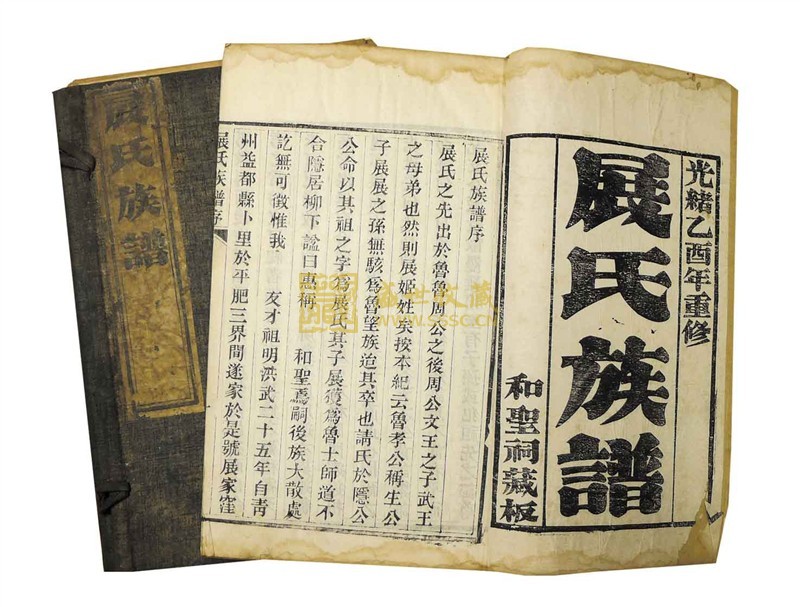 光緒乙酉年重修
展氏族譜
和聖祠藏板
展氏族譜序
展氏之先出於魯魯周公之後周公文王之子武王
之母弟也然則展姬姓矣按本紀云魯孝公稱生公
子展展之孫無駭為魯望族迨其卒也請氏於隱公
公命以其祖之字為展氏其子展獲為魯士師道不
合隱居柳下諡曰惠稱 和聖焉嗣後族大散處
訖無可徵惟我 友才祖明洪武二十五年自青
州益都縣卜里於平肥三界間遂家於是號展家窪
展氏族譜序
展氏族譜
盛世收藏
www.sssc.cn